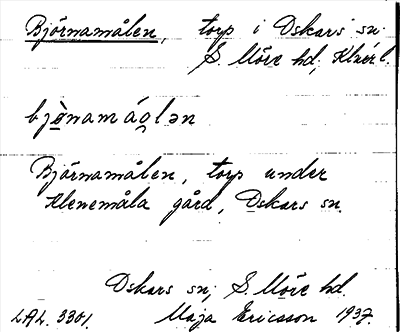 Björnamålen, torp i Oskars sn.
S. Möre hd, Klm l.
bjö̀namáɷlən
Björnamålen, torp under
Klenemåla gård, Oskars sn.
Oskars sn, S. Möre hd.
LAL. 3301. Maja Ericsson 1937.